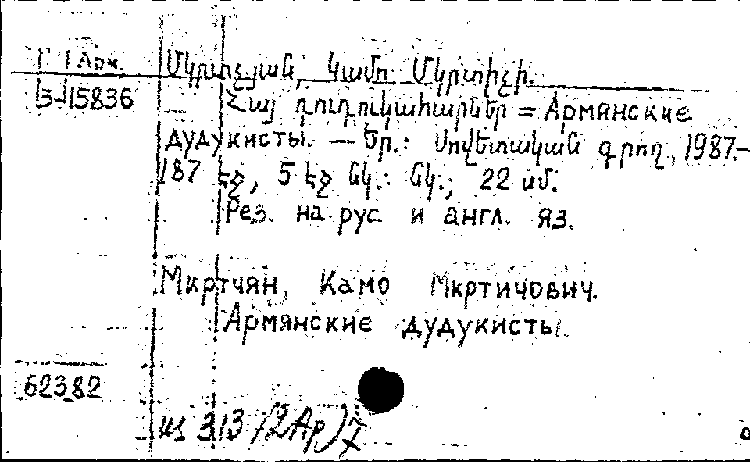 Г 1 Арм.
З-15836
Մկրտչյան, Կամո Մկրտիչի.
Հայ դուդուկահարներ = Армянские
дудукисты. — Եր.: Սովետական գրող, 1987.–
187 էջ, 5 էջ նկ.: նկ.; 22 սմ.
Рез. на рус и англ. яз.
Мкртчян, Камо Мкртичович.
Армянские дудукисты.
62382
313 /2Ар/